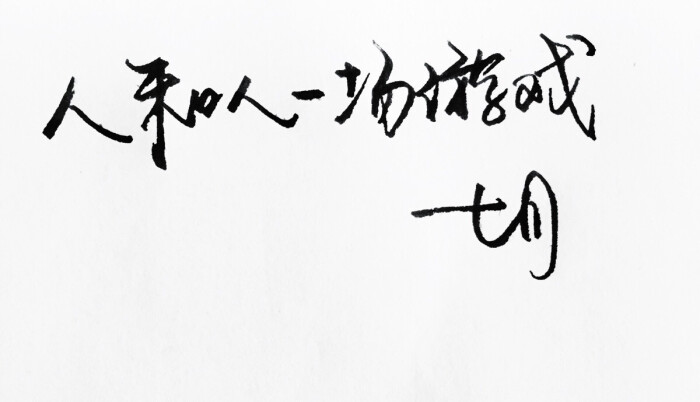 人和人一场游戏
七月